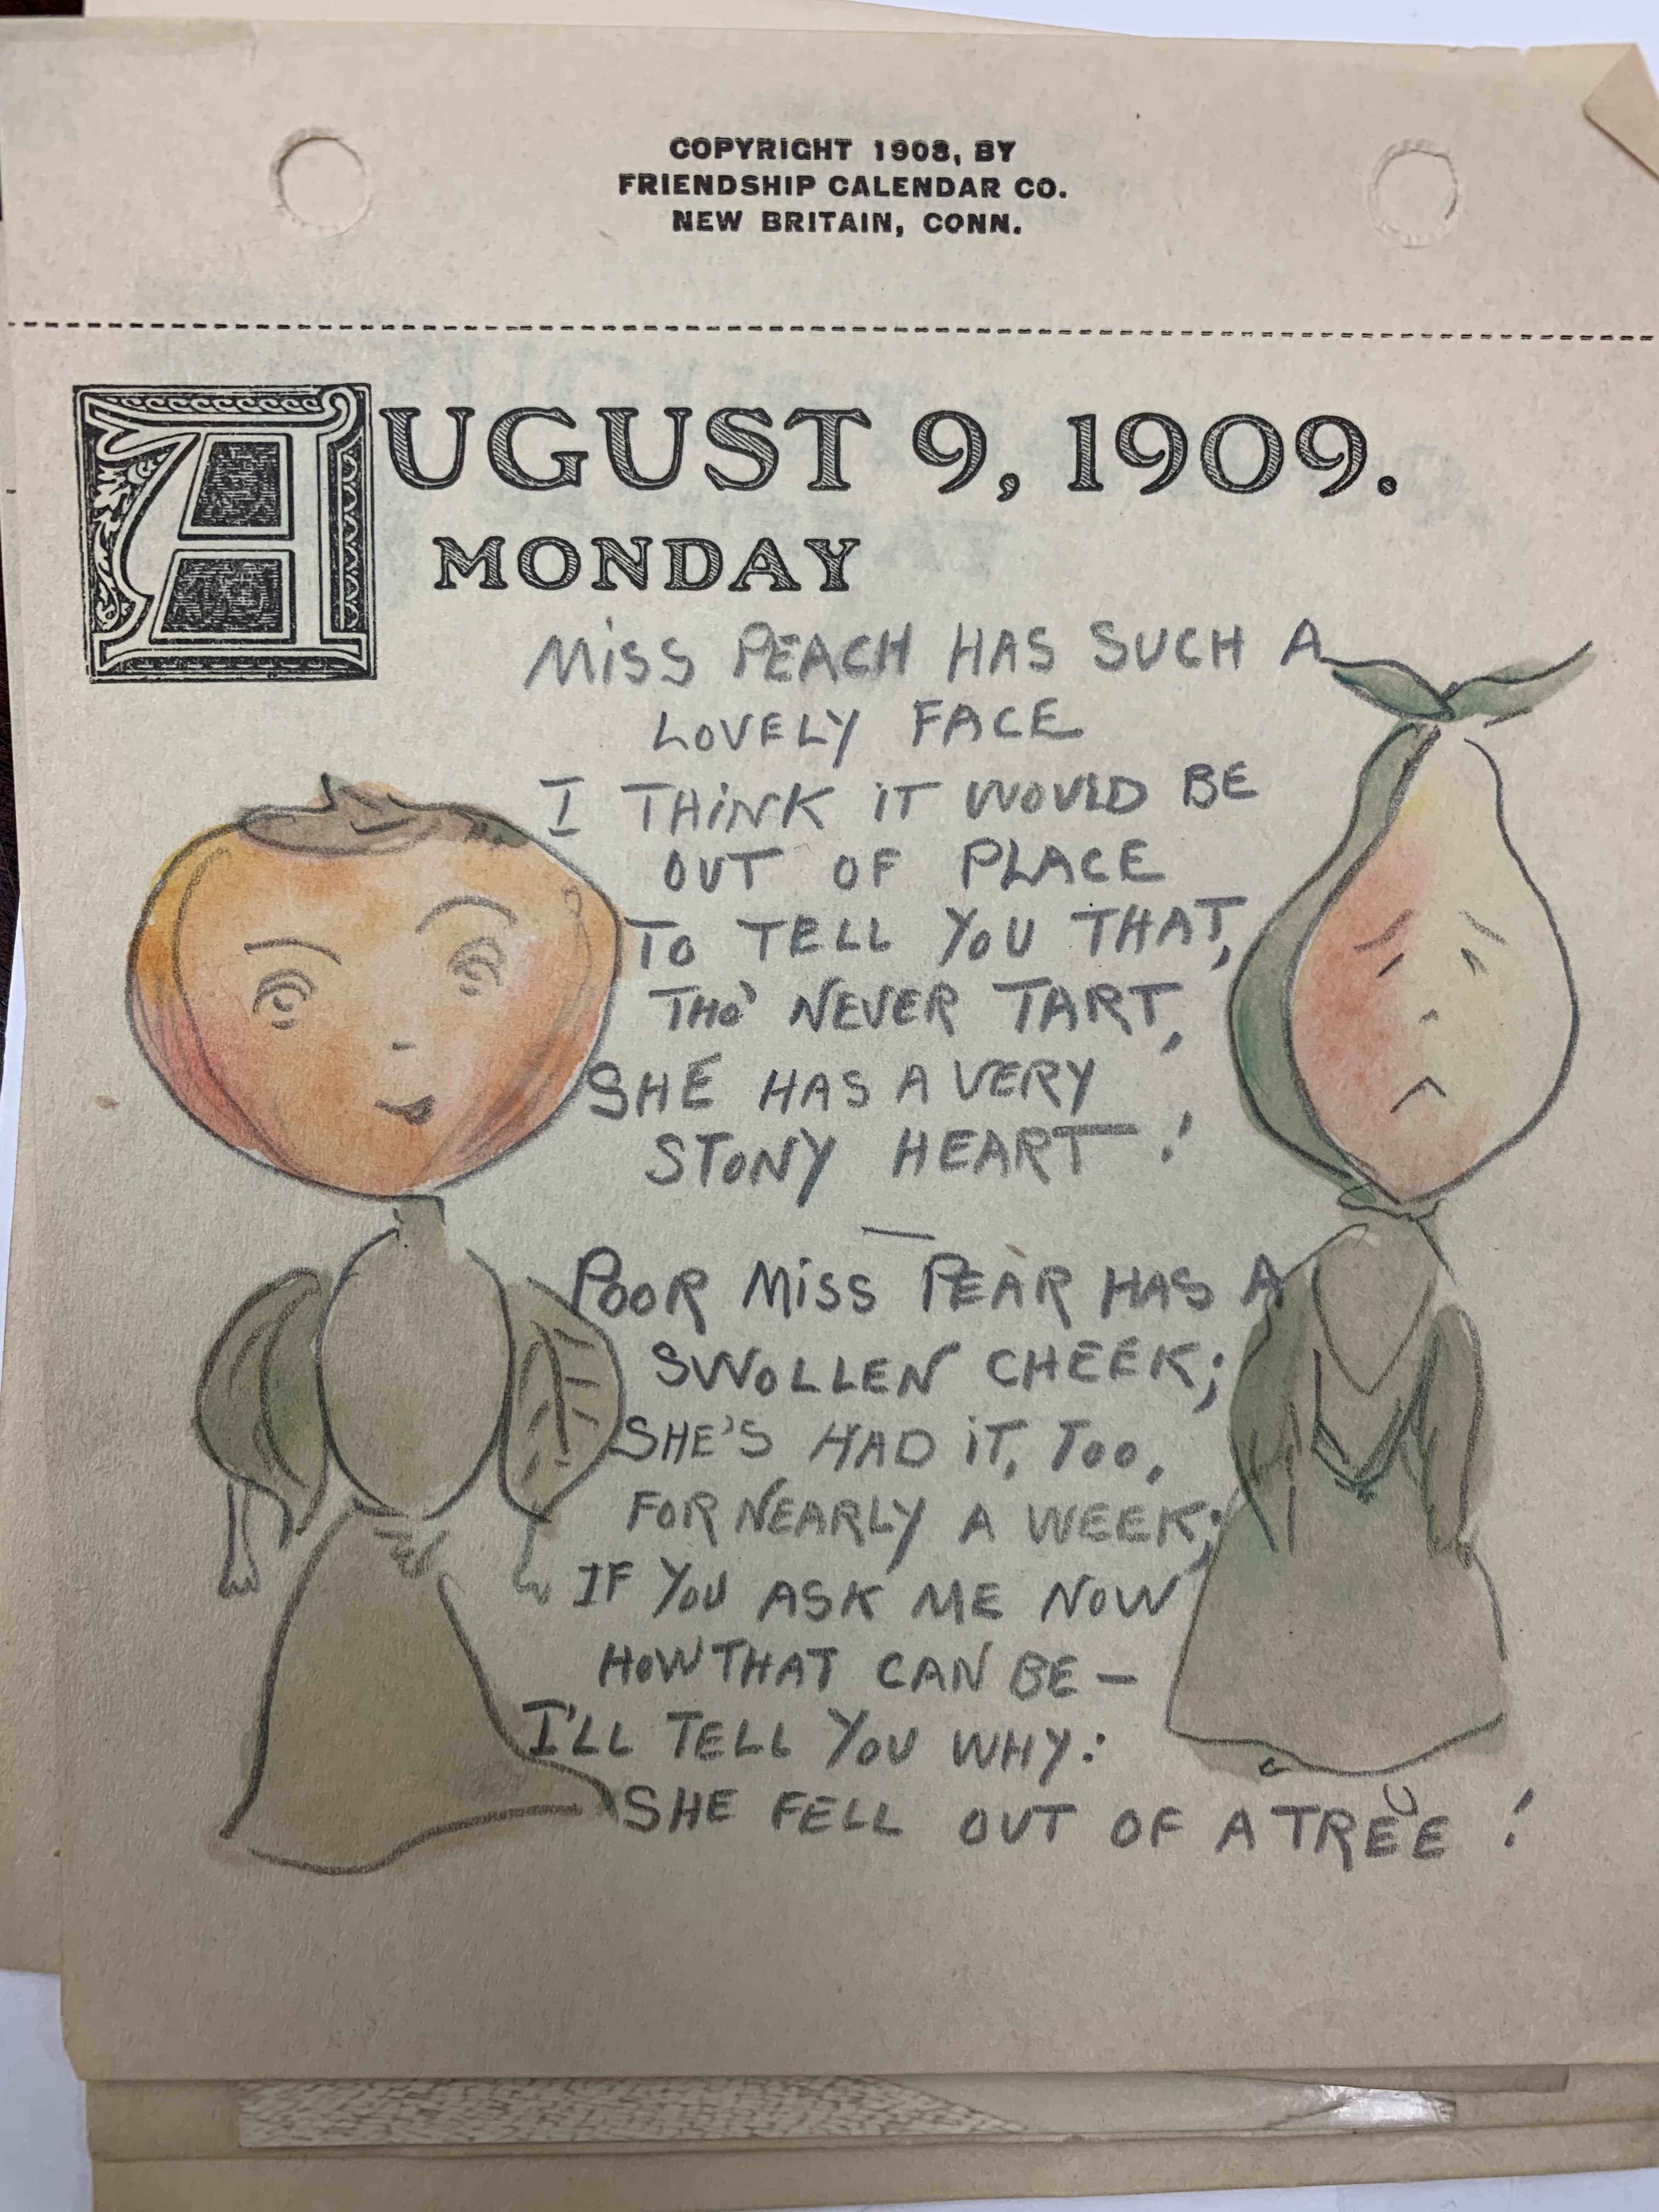 COPYRIGHT 1908, BY
FRIENDSHIP CALENDAR CO.
NEW BRITAIN, CONN.
AUGUST 9, 1909.
MONDAY
MISS PEACH HAS SUCH A
LOVELY FACE
I THINK IT WOULD BE
OUT OF PLACE
TO TELL YOU THAT,
THO' NEVER TART,
SHE HAS A VERY
STONY HEART!
—
POOR MISS PEAR HAS A
SWOLLEN CHEEK;
SHE'S HAD IT, TOO,
FOR NEARLY A WEEK;
IF YOU ASK ME NOW
HOW THAT CAN BE —
I'LL TELL YOU WHY:
SHE FELL OUT OF A TREE!